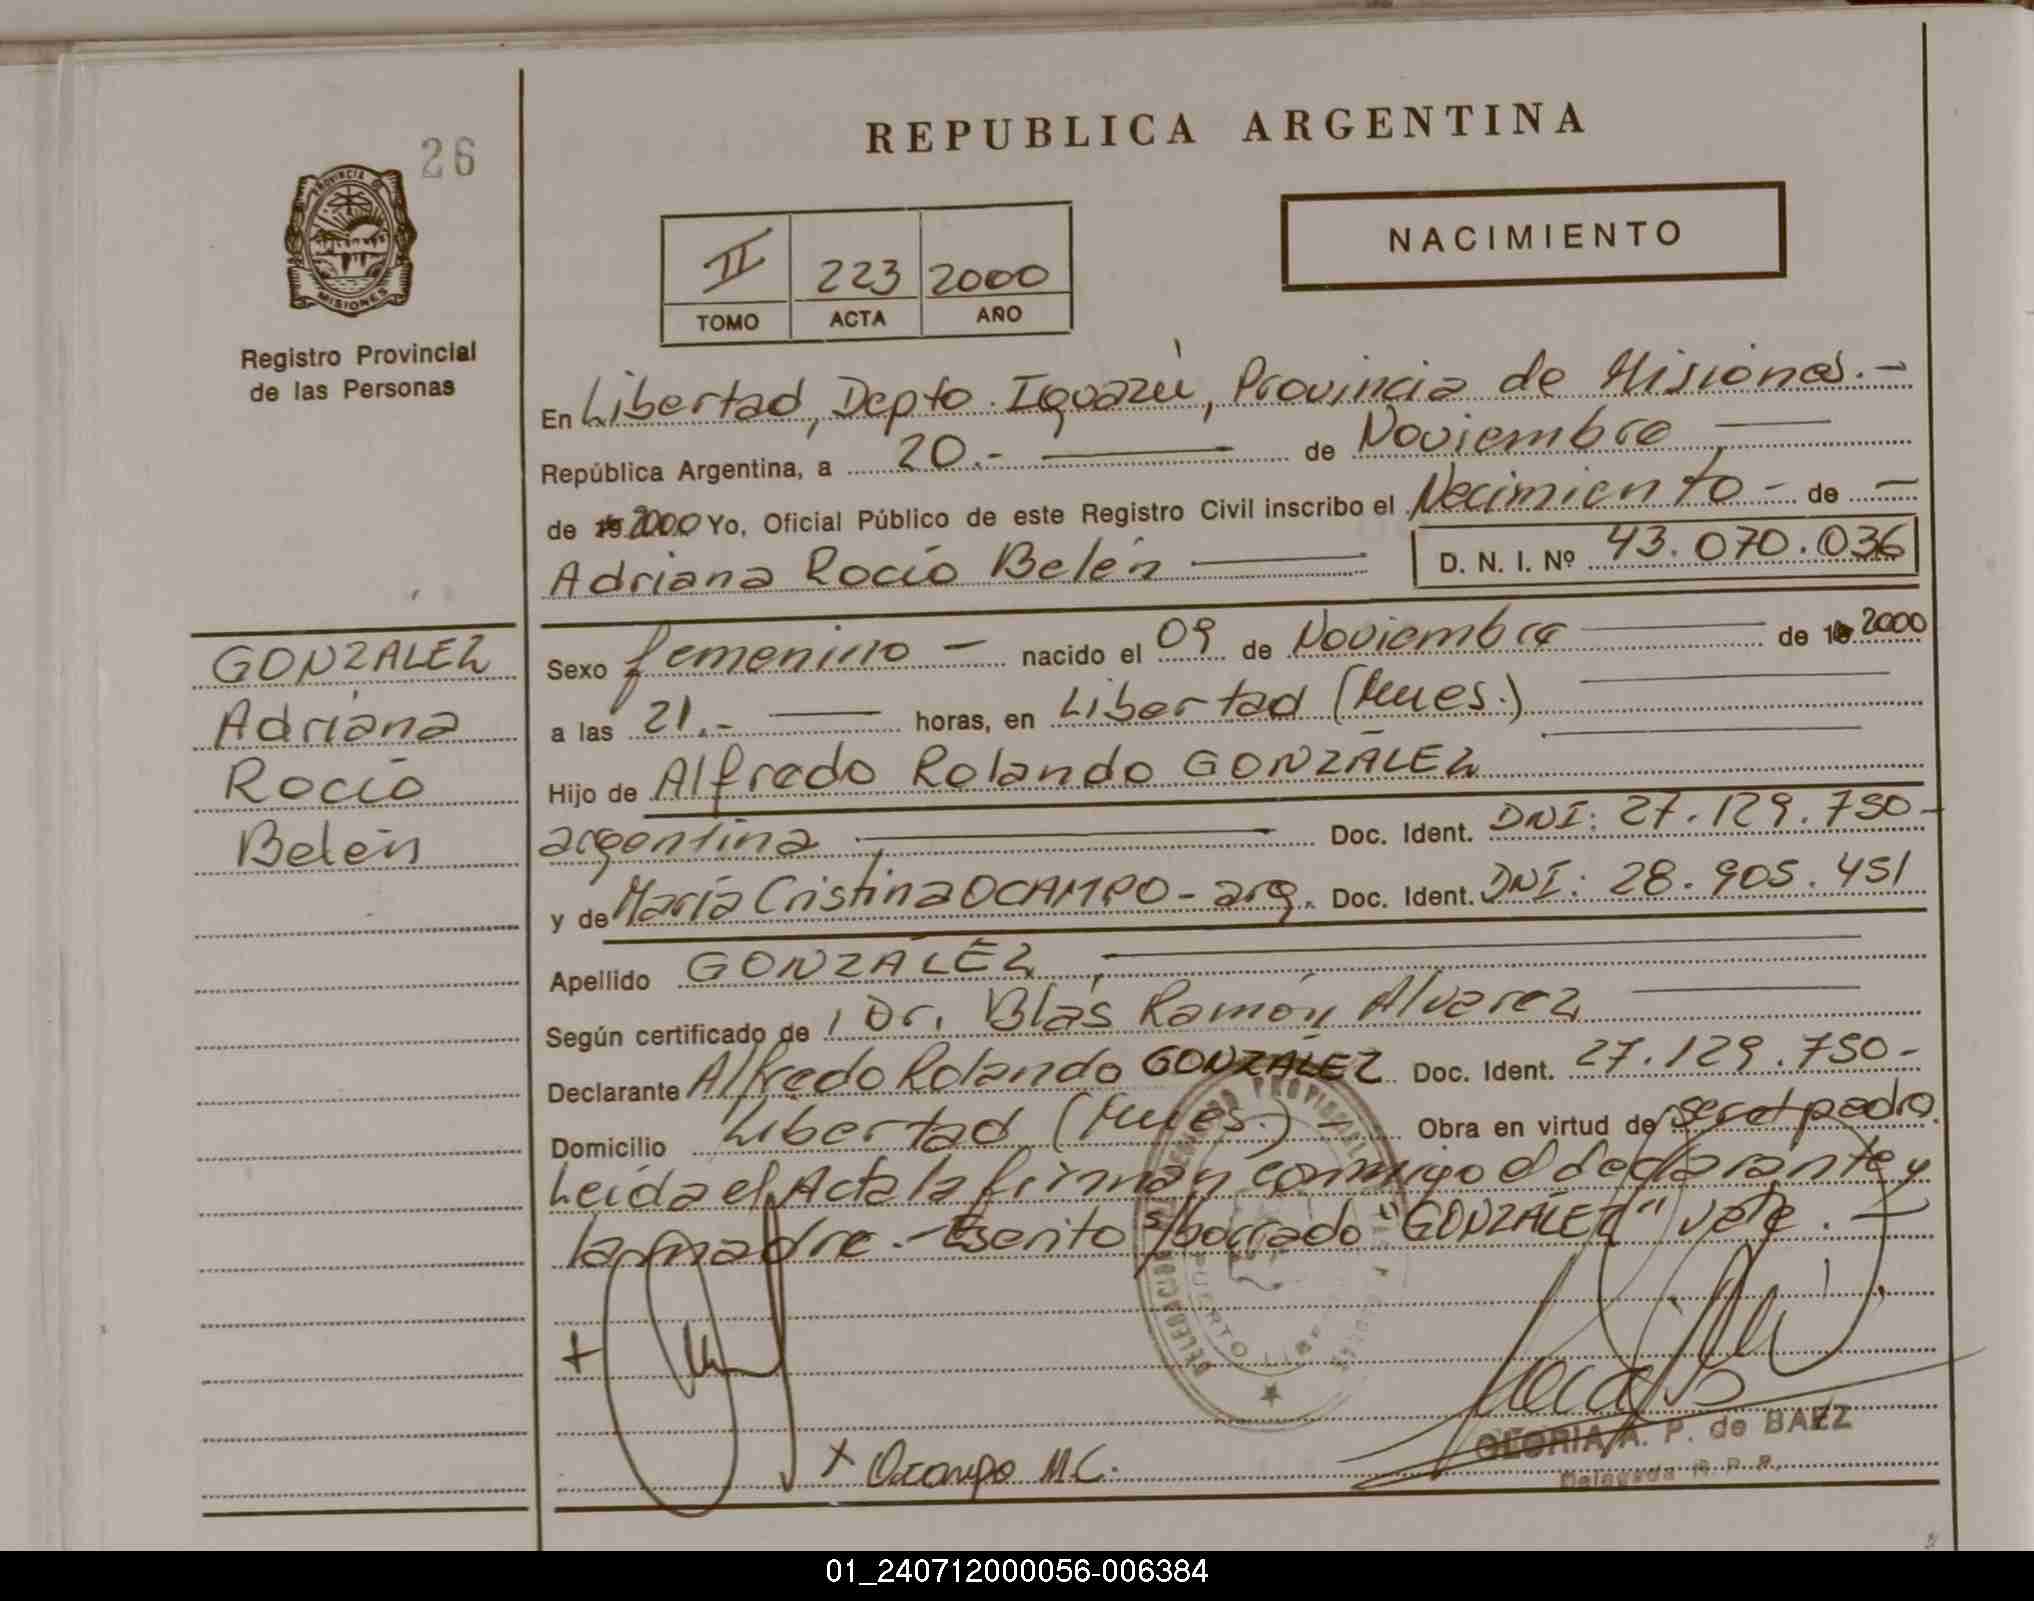 26
REPUBLICA ARGENTINA
PROVINCIA DE
MISIONES
Registro Provincial
de las Personas
NACIMIENTO
II 223 2000
TOMO ACTA AÑO
En Libertad, Depto. Iguazú, Provincia de Misiones.-
República Argentina, a 20.- de Noviembre
de 2000 Yo, Oficial Público de este Registro Civil inscribo el Nacimiento - de -
Adriana Rocío Belén D. N. I. Nº 43.070.036
GONZALEZ
Adriana
Rocío
Belén
Sexo femenino - nacido el 09 de Noviembre de 2000
a las 21.- horas, en Libertad (Mnes.)
Hijo de Alfredo Rolando GONZÁLEZ
argentina Doc. Ident. DNI: 27.129.750-
y de María Cristina OCAMPO - arg. Doc. Ident. DNI: 28.905.451
Apellido GONZÁLEZ
Según certificado de Dr. Blás Ramón Alvarez
Declarante Alfredo Rolando GONZÁLEZ Doc. Ident. 27.129.750-
Domicilio Libertad (Mnes.) - Obra en virtud de ser el padre.
Leída el Acta la firman conmigo el declarante y
la madre.- Escrito s/borrado "GONZÁLEZ" vale.-
+
x Ocampo M.C.
GLORIA A. P. de BAEZ
Delegada R. P. P.
01_240712000056-006384